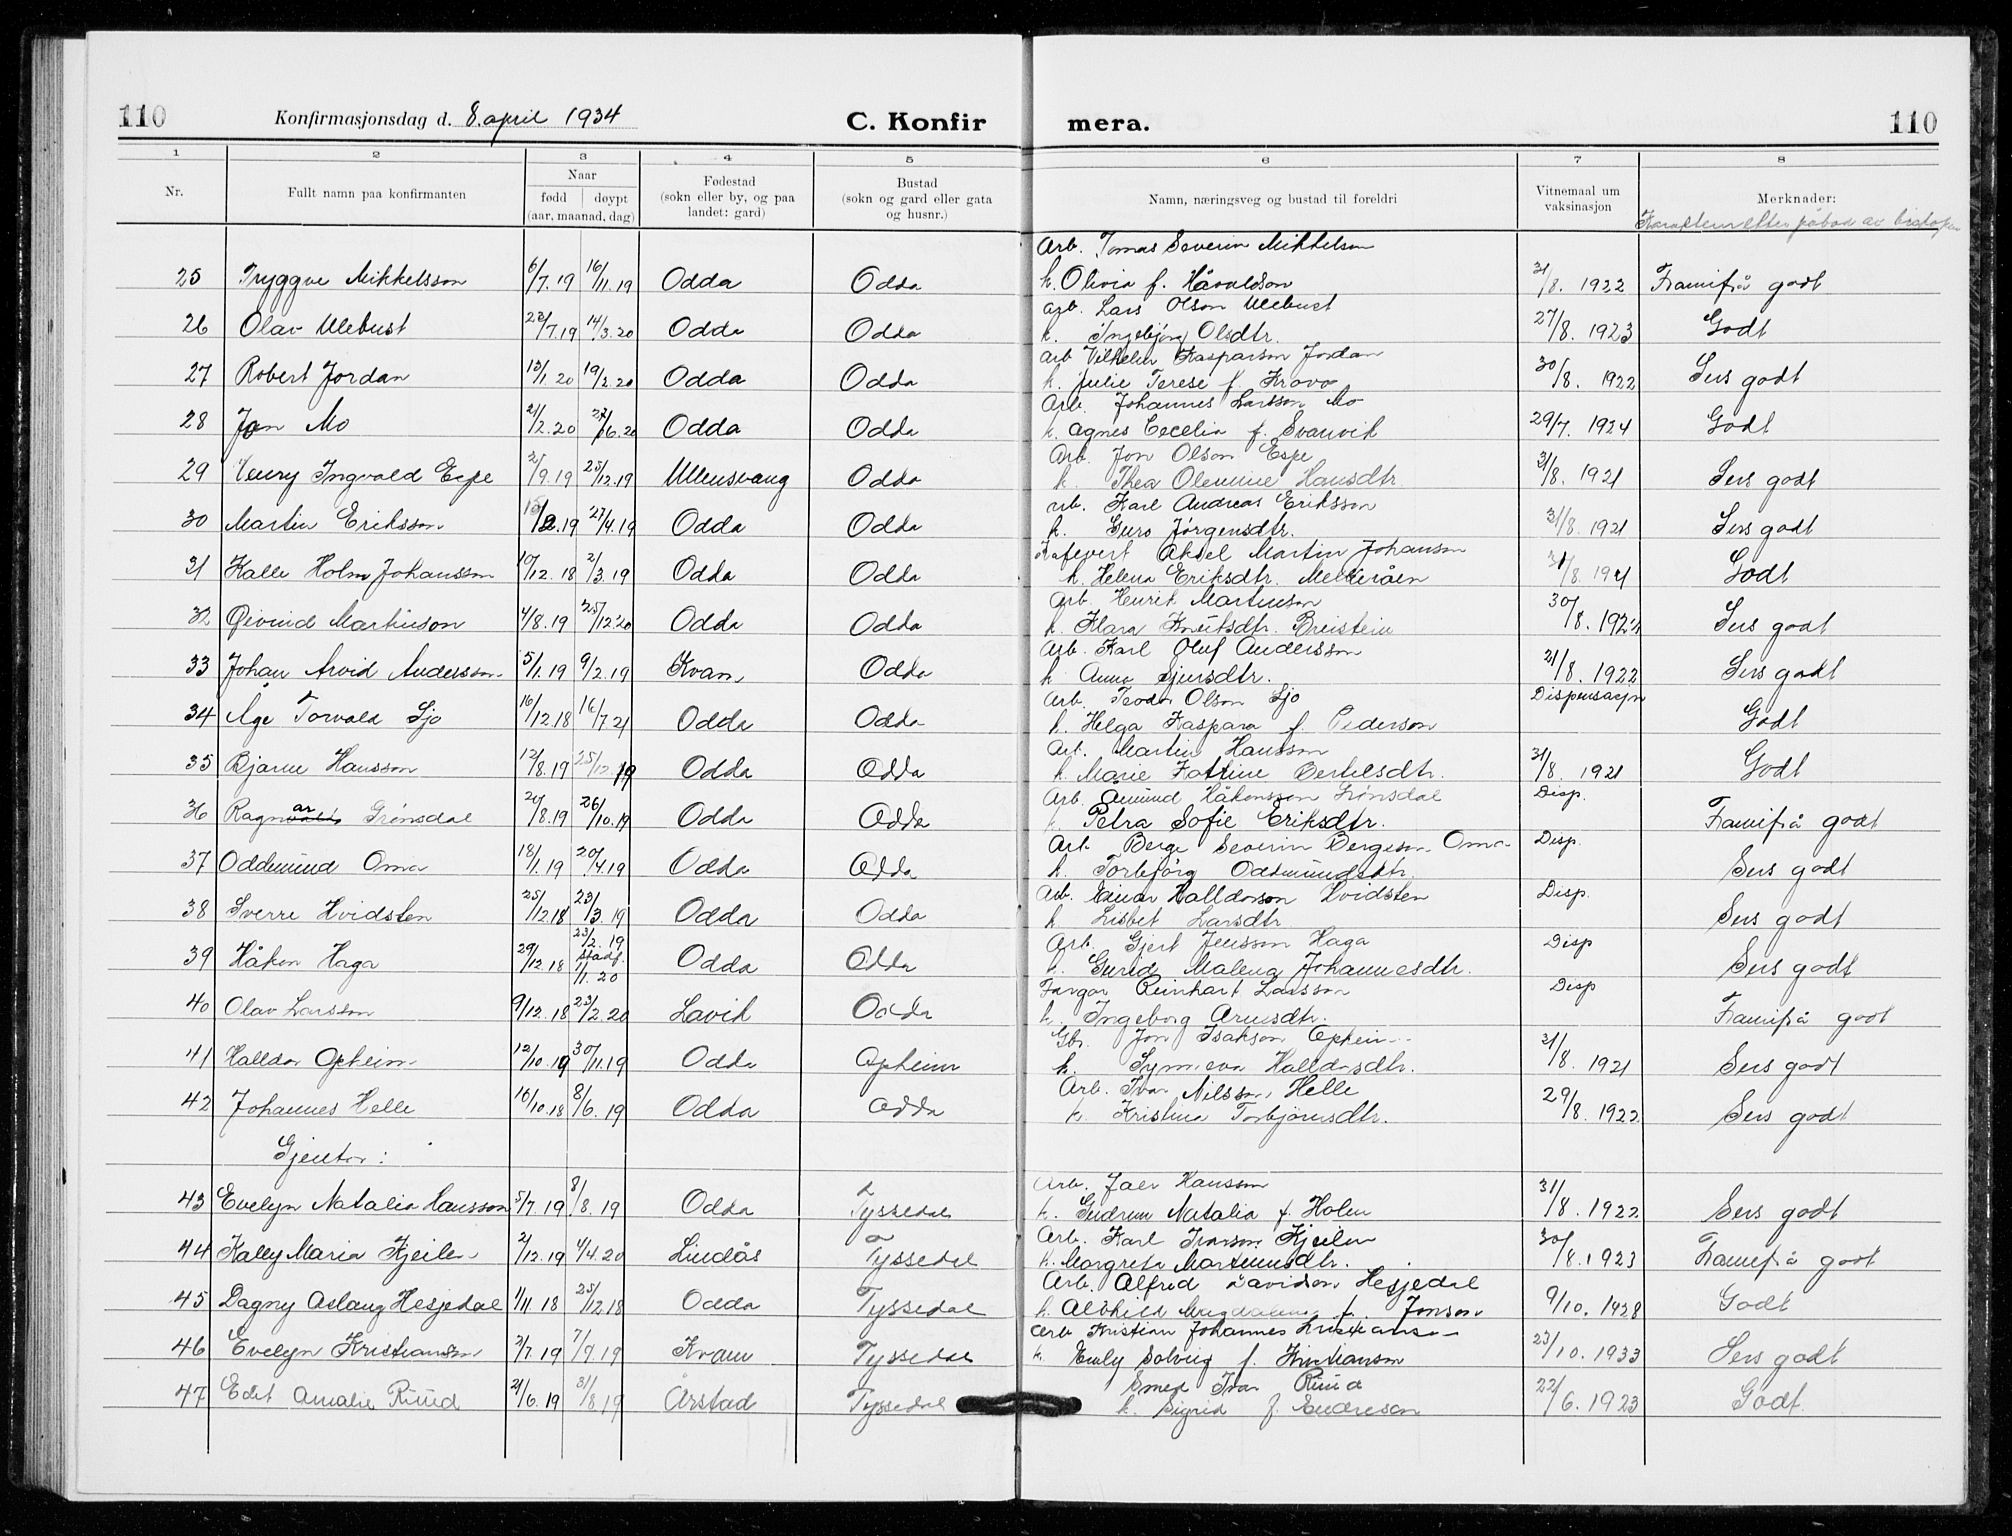 110 Konfirmasjonsdag d. 8. april 1934 C. Konfir mera. 110
1 2 3 4 5 6 7 8
Nr. Fullt namn paa konfirmanten Naar fødd døypt (aar, maanad, dag) Fødestad (sokn eller by, og paa landet: gard) Bustad (sokn og gard eller gata og husnr.) Namn, næringsveg og bustad til foreldri Vitnemaal um vaksinasjon Merknader:
Karakteren etter påbod av
Arb. Tomas Severin Mikkelson
25 Tryggve Mikkelsson 6/7.19 16/11.19 Odda Odda k. Olivia f. Håvaldson 31/8. 1922 Framifrå godt
Arb. Lars Olson Ulebust
26 Olav Ulebust 22/7.19 14/3.20 Odda Odda k. Ingebjørg Olsdtr. 27/8. 1923 Godt
Arb Vilhelm Kasparson Jordan
27 Robert Jordan 13/1.20 19/2.20 Odda Odda k. Julie Terese f. Kravo 30/8. 1922 Sers godt
Arb. Johannes Larsson Mo
28 Jon Mo 21/2.20 27/6.20 Odda Odda k. Agnes Cecelia f. Svanvik 29/7. 1924 Godt
Arb. Jon Olson Espe
29 Henry Ingvald Espe 2/9.19 25/12.19 Ullensvang Odda k. Thea Olemine Hansdtr. 31/8. 1921 Sers godt
Arb. Karl Andreas Eriksson
30 Martin Eriksson 13/2.19 27/4.19 Odda Odda k. Guro Jørgensdtr. 31/8. 1921 Sers godt
Aksel Martin Johanson
31 Kalle Holm Johansson 10/12.18 2/3.19 Odda Odda k. Helena Eriksdtr. Melkeråen 31/8. 1921 Godt
Arb. Henrik Martinson
32 Øivind Martinson 4/8.19 25/12.20 Odda Odda k. Klara Knutsdtr. Breistein 30/8. 1921 Sers godt
Arb. Karl Oluf Andersson
33 Johan Arvid Andersson 5/1.19 9/2.19 Kvam Odda k Anna Sjursdtr. 31/8. 1922 Sers godt
Arb. Teodor Olson Sjo Dispensasjn
34 Åge Torvald Sjo 16/12.18 16/7.21 Odda Odda k. Helga Kaspara f. Pederson Godt
Arb. Martin Hansson
35 Bjarne Hansson 12/8.19 25/12.19 Odda Odda k. Marie Katrine Bertelsdtr. 31/8. 1921 Godt
Arb. Amund Håkonsson Grønsdal Disp.
36 Ragnar Grønsdal 20/8.19 26/10.19 Odda Odda k Petra Sofie Eriksdtr. Framifrå godt
Arb Berge Severin Bergeson Oma Disp.
37 Oddmund Oma 18/1.19 20/4.19 Odda Odda k. Torbjørg Oddmundsdtr. Sers godt
Arb. Einar Halldorson Hvidsten Disp.
38 Sverre Hvidsten 25/12.18 23/3.19 Odda Odda k Lisbet Larsdtr. Sers godt
Arb. Gjert Jensson Haga Disp
39 Håkon Haga 29/12.18 23/2.19 stadf. 11.20 Odda Odda k. Gurid Malena Johannesdtr. Sers godt
Fargar Reinhart Larsson Disp
40 Olav Larsson 9/12.18 23/2.20 Lavik Odda k. Ingeborg Arnesdtr. Framifrå godt
Gbr. Jon Isakson Opheim
41 Halldor Opheim 12/10.19 30/11.19 Odda Opheim k. Synneva Halldorsdtr. 31/8. 1921 Sers godt
Arb. Ivar Nilsson Helle
42 Johannes Helle 16/10.18 8/6.19 Odda Odda k. Kristina Torbjørnsdtr. 29/8. 1922 Sers godt
Gjentor:
Arb. Joar Hansson
43 Evelyn Natalia Hansson 5/7.19 8/8.19 Odda Tyssedal k. Gudrun Natalia f. Holm 31/8. 1922 Sers godt
Arb. Karl Ivarson Kjeilen
44 Kally Maria Kjeilen 2/12.19 4/4.20 Lindås Tyssedal k. Margreta Martinusdtr. 30/8. 1923 Framifrå godt
Arb. Alfred Davidson Hesjedal
45 Dagny Aslaug Hesjedal 1/11.18 25/12.18 Odda Tyssedal k. Alvhild Magdalena f. Jonson 9/10. 1928 Godt
Arb Kristian Johannes Kristianson
46 Evelyn Kristianson 3/7.19 7/9.19 Kvam Tyssedal k. Emly Solveig f. Kristianson 23/10. 1933 Sers godt
Smed Ivar Ruud
47 Edit Amalie Ruud 21/6.19 31/8.19 Årstad Tyssedal k. Sigrid f. Andreson 22/6. 1923 Godt.